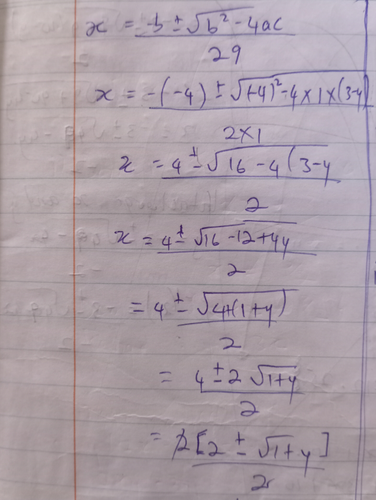 x = -b ± √b² - 4ac / 29
x = -(-4) ± √(-4)² - 4 × 1 × (3-y) / 2×1
x = 4 ± √16 - 4 (3-y / 2
x = 4 ± √16 - 12 + 4y / 2
= 4 ± √4+(1+y) / 2
= 4 ± 2 √1+y / 2
= 2 [2 ± √1+y] / 2